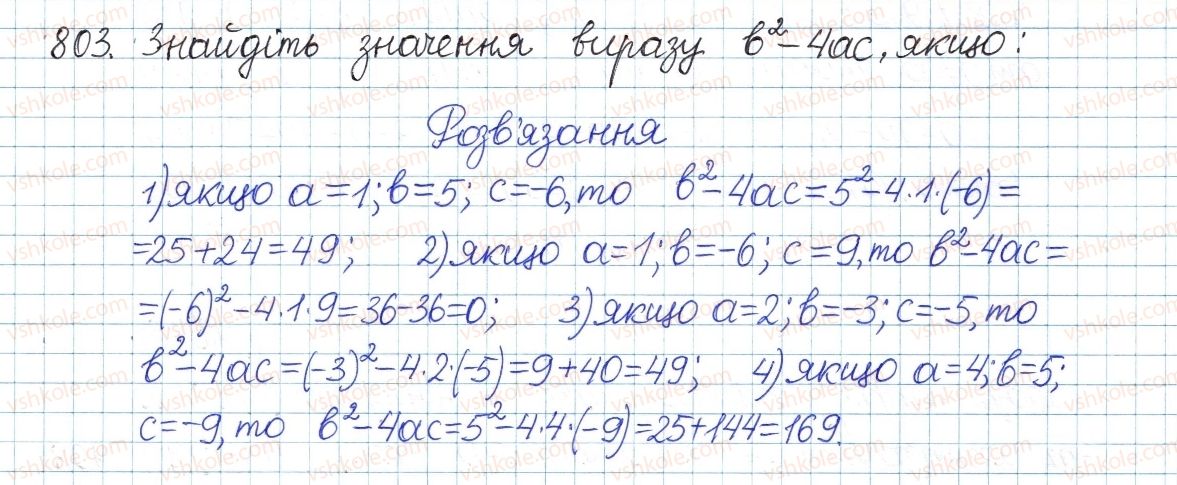 803. Знайдіть значення виразу в²-4ас, якщо:
Розв'язання
1) якщо а=1; в=5; с=-6, то в²-4ас=5²-4·1·(-6)=
=25+24=49; 2) якщо а=1; в=-6; с=9, то в²-4ас=
=(-6)²-4·1·9=36-36=0; 3) якщо а=2; в=-3; с=-5, то
в²-4ас=(-3)²-4·2·(-5)=9+40=49; 4) якщо а=4; в=5;
с=-9, то в²-4ас=5²-4·4·(-9)=25+144=169.